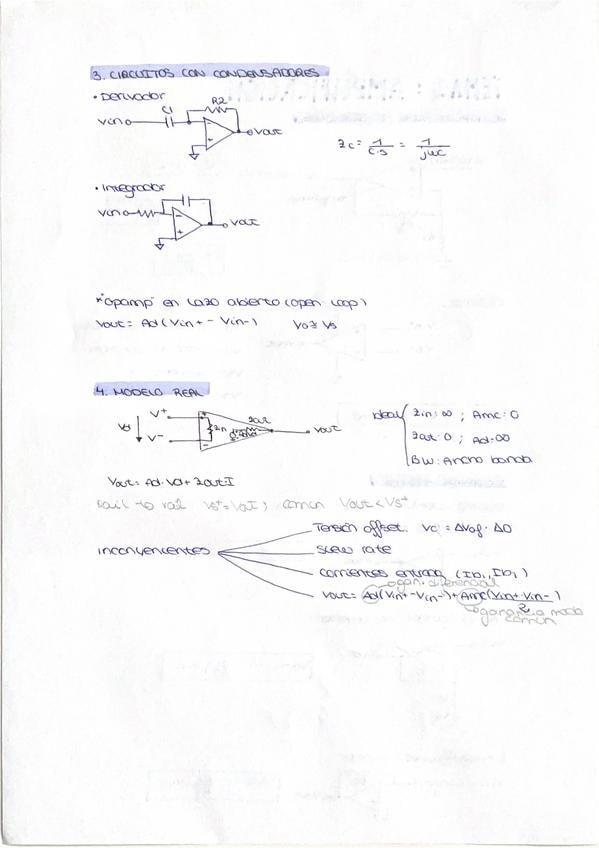 3. CIRCUITOS CON CONDENSADORES
• Derivador
C1
R2
Vin
Vout
Zc = 1/C·S = 1/jωC
• Integrador
Vin
Vout
* "opamp" en lazo abierto (open loop)
Vout = Ad (Vin+ - Vin-)
4. MODELO REAL
V+
Vd
V-
Zin
Zout
Vout
Ideal
Zin: ∞ ; Amc: 0
Zout: 0 ; Ad: ∞
BW: Ancho banda
Vout = Ad · Vd + Zout I
rail to rail Vs+ = Vout ; común Vout < Vs+
Inconvenientes
Tensión offset.
Slew rate
Corrientes entrada
gan. diferencial
Vout = Ad (Vin+ - Vin-) + Amc (Vin+ · Vin-)/2
ganancia modo
común